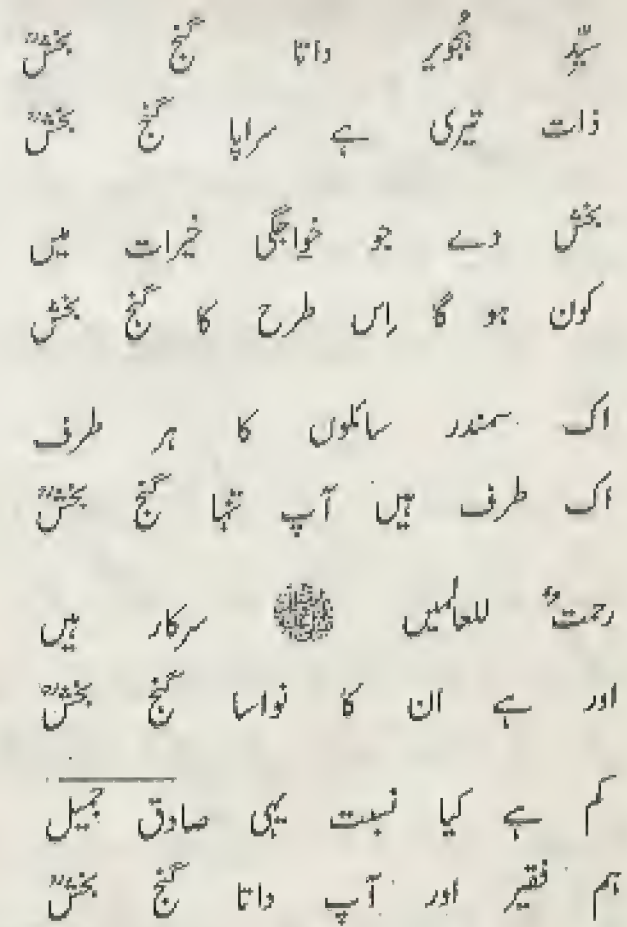 سیّدِ ہُجویر داتا گنج بخشؒ
ذات تیری ہے سراپا گنج بخشؒ
بخش دے جو خواجگی خیرات میں
کون ہو گا اِس طرح کا گنج بخش
اک سمندر سائلوں کا ہر طرف
اک طرف ہیں آپ تنہا گنج بخشؒ
رحمتٌ للعالمیں ﷺ سرکار ہیں
اور ہے ان کا نواسا گنج بخشؒ
کم ہے کیا نسبت یہی صادق جمیل
ہم فقیر اور آپ داتا گنج بخشؒ